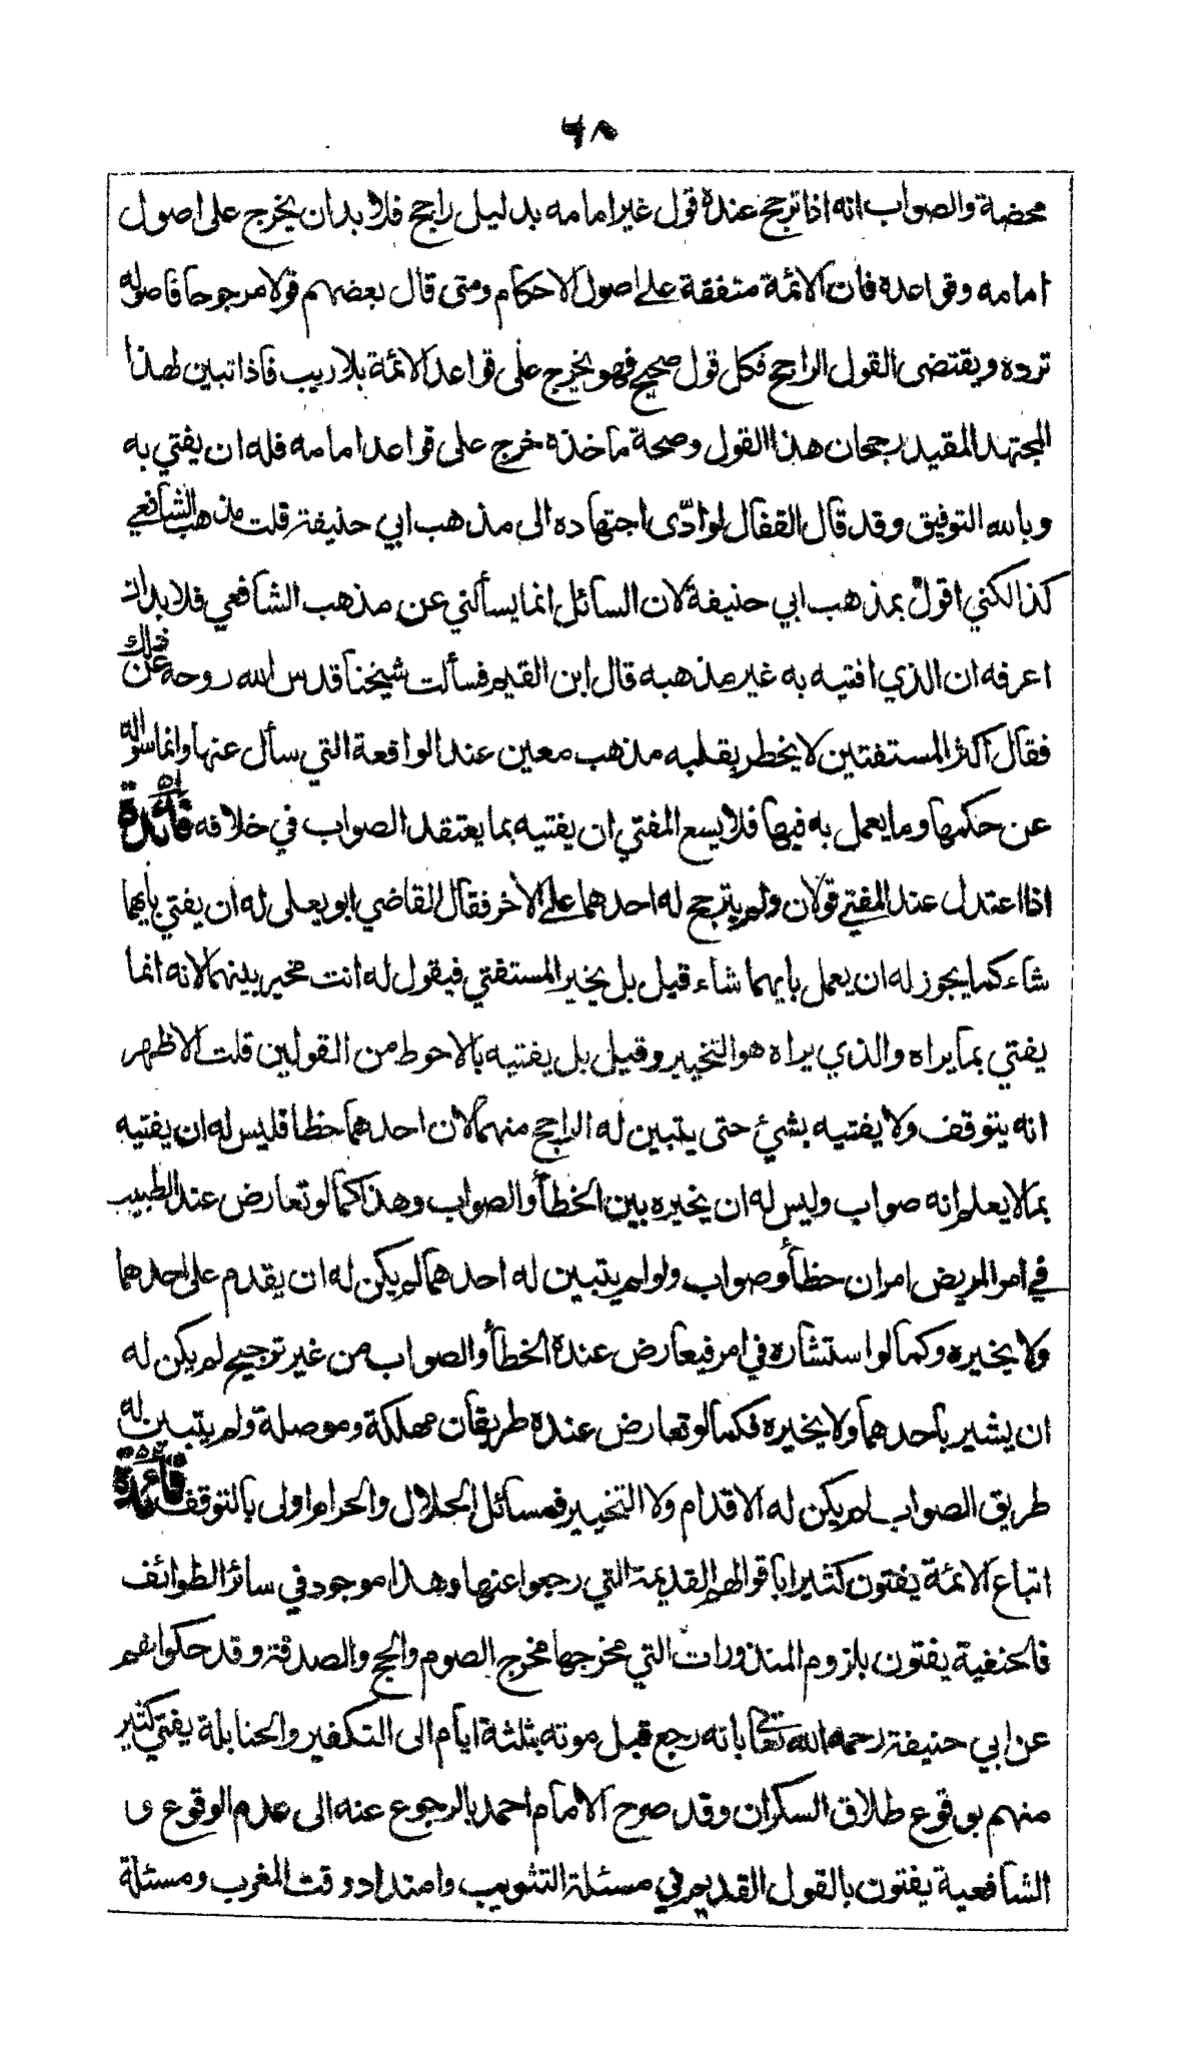 ٤٨
محضة والصواب انه اذا ترجح عندة قول غير امامه بدليل راجح فلا بد ان يخرج على اصول
امامه وقواعدة فان الائمة متفقة على اصول الاحكام ومتى قال بعضهم قولا مرجوحا فاصوله
تردة ويقتضى القول الراجح فكل قول صحيح فهو يخرج على قواعد الائمة بلا ريب فاذا تبين لهذا
المجتهد المقيد رجحان هذا القول وصحة ماخذة خرج على قواعد امامه فله ان يفتي به
وبالله التوفيق وقد قال القفال لو ادّى اجتهاده الى مذهب ابي حنيفة قلت مذهب الشافعي
كذا لكني اقول بمذهب ابي حنيفة لان السائل انما يسألني عن مذهب الشافعي فلا بد ان
اعرفه ان الذي افتيه به غير مذهبه قال ابن القيم فسألت شيخنا قدس الله روحه عن ذلك
فقال اكثر المستفتين لا يخطر بقلبه مذهب معين عند الواقعة التي سأل عنها وانما سواله
عن حكمها وما يعمل به فيها فلا يسع المفتي ان يفتيه بما يعتقد الصواب في خلافه فائدة ٥١
اذا اعتدل عند المفتي قولان ولم يترجح له احدهما على الأخر فقال القاضي ابو يعلى له ان يفتي بأيهما
شاء كما يجوز له ان يعمل بايهما شاء قيل بل يخير المستفتي فيقول له انت مخير بينهما لانه انما
يفتي بما يراه والذي يراه هو التخيير وقيل بل يفتيه بالاحوط من القولين قلت الاظهر
انه يتوقف ولا يفتيه بشئ حتى يتبين له الراجح منهما لان احدهما خطأ فليس له ان يفتيه
بما لا يعلم انه صواب وليس له ان يخيره بين الخطأ والصواب وهذا كما لو تعارض عند الطبيب
في امر المريض امران خطأ وصواب ولو لم يتبين له احدهما لم يكن له ان يقدم على احدهما
ولا يخيره وكما لو استشاره في امر فيعارض عندة الخطأ والصواب من غير ترجيح لم يكن له
ان يشير بأحدهما ولا يخيره فكما لو تعارض عندة طريقان مهلكة وموصلة ولم يتبين له
طريق الصواب لم يكن له الاقدام ولا التخيير فمسائل الحلال والحرام اولى بالتوقف فائدة ٥٢
اتباع الائمة يفتون كثيرا باقوالهم القديمة التي رجعوا عنها وهذا موجود في سائر الطوائف
فالحنفية يفتون بلزوم المنذورات التي مخرجها مخرج الصوم والحج والصدقة وقد حكوا هم
عن ابي حنيفة رحمه الله تعالى بانه رجع قبل موته بثلثة ايام الى التكفير والحنابلة يفتي كثير
منهم بوقوع طلاق السكران وقد صرح الامام احمد بالرجوع عنه الى عدم الوقوع و
الشافعية يفتون بالقول القديم في مسئلة التثويب وامتداد وقت المغرب ومسئلة